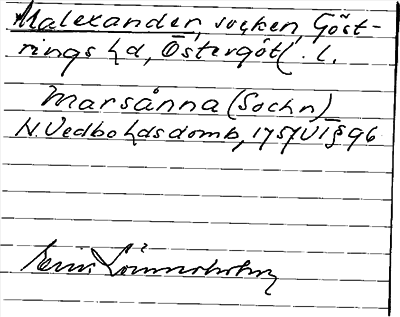 Malexander, socken, Göst-
rings hd, Östergötl. l.
Marsånna (Sochn)
N. Vedbo hdsdomb, 1757 VI § 96